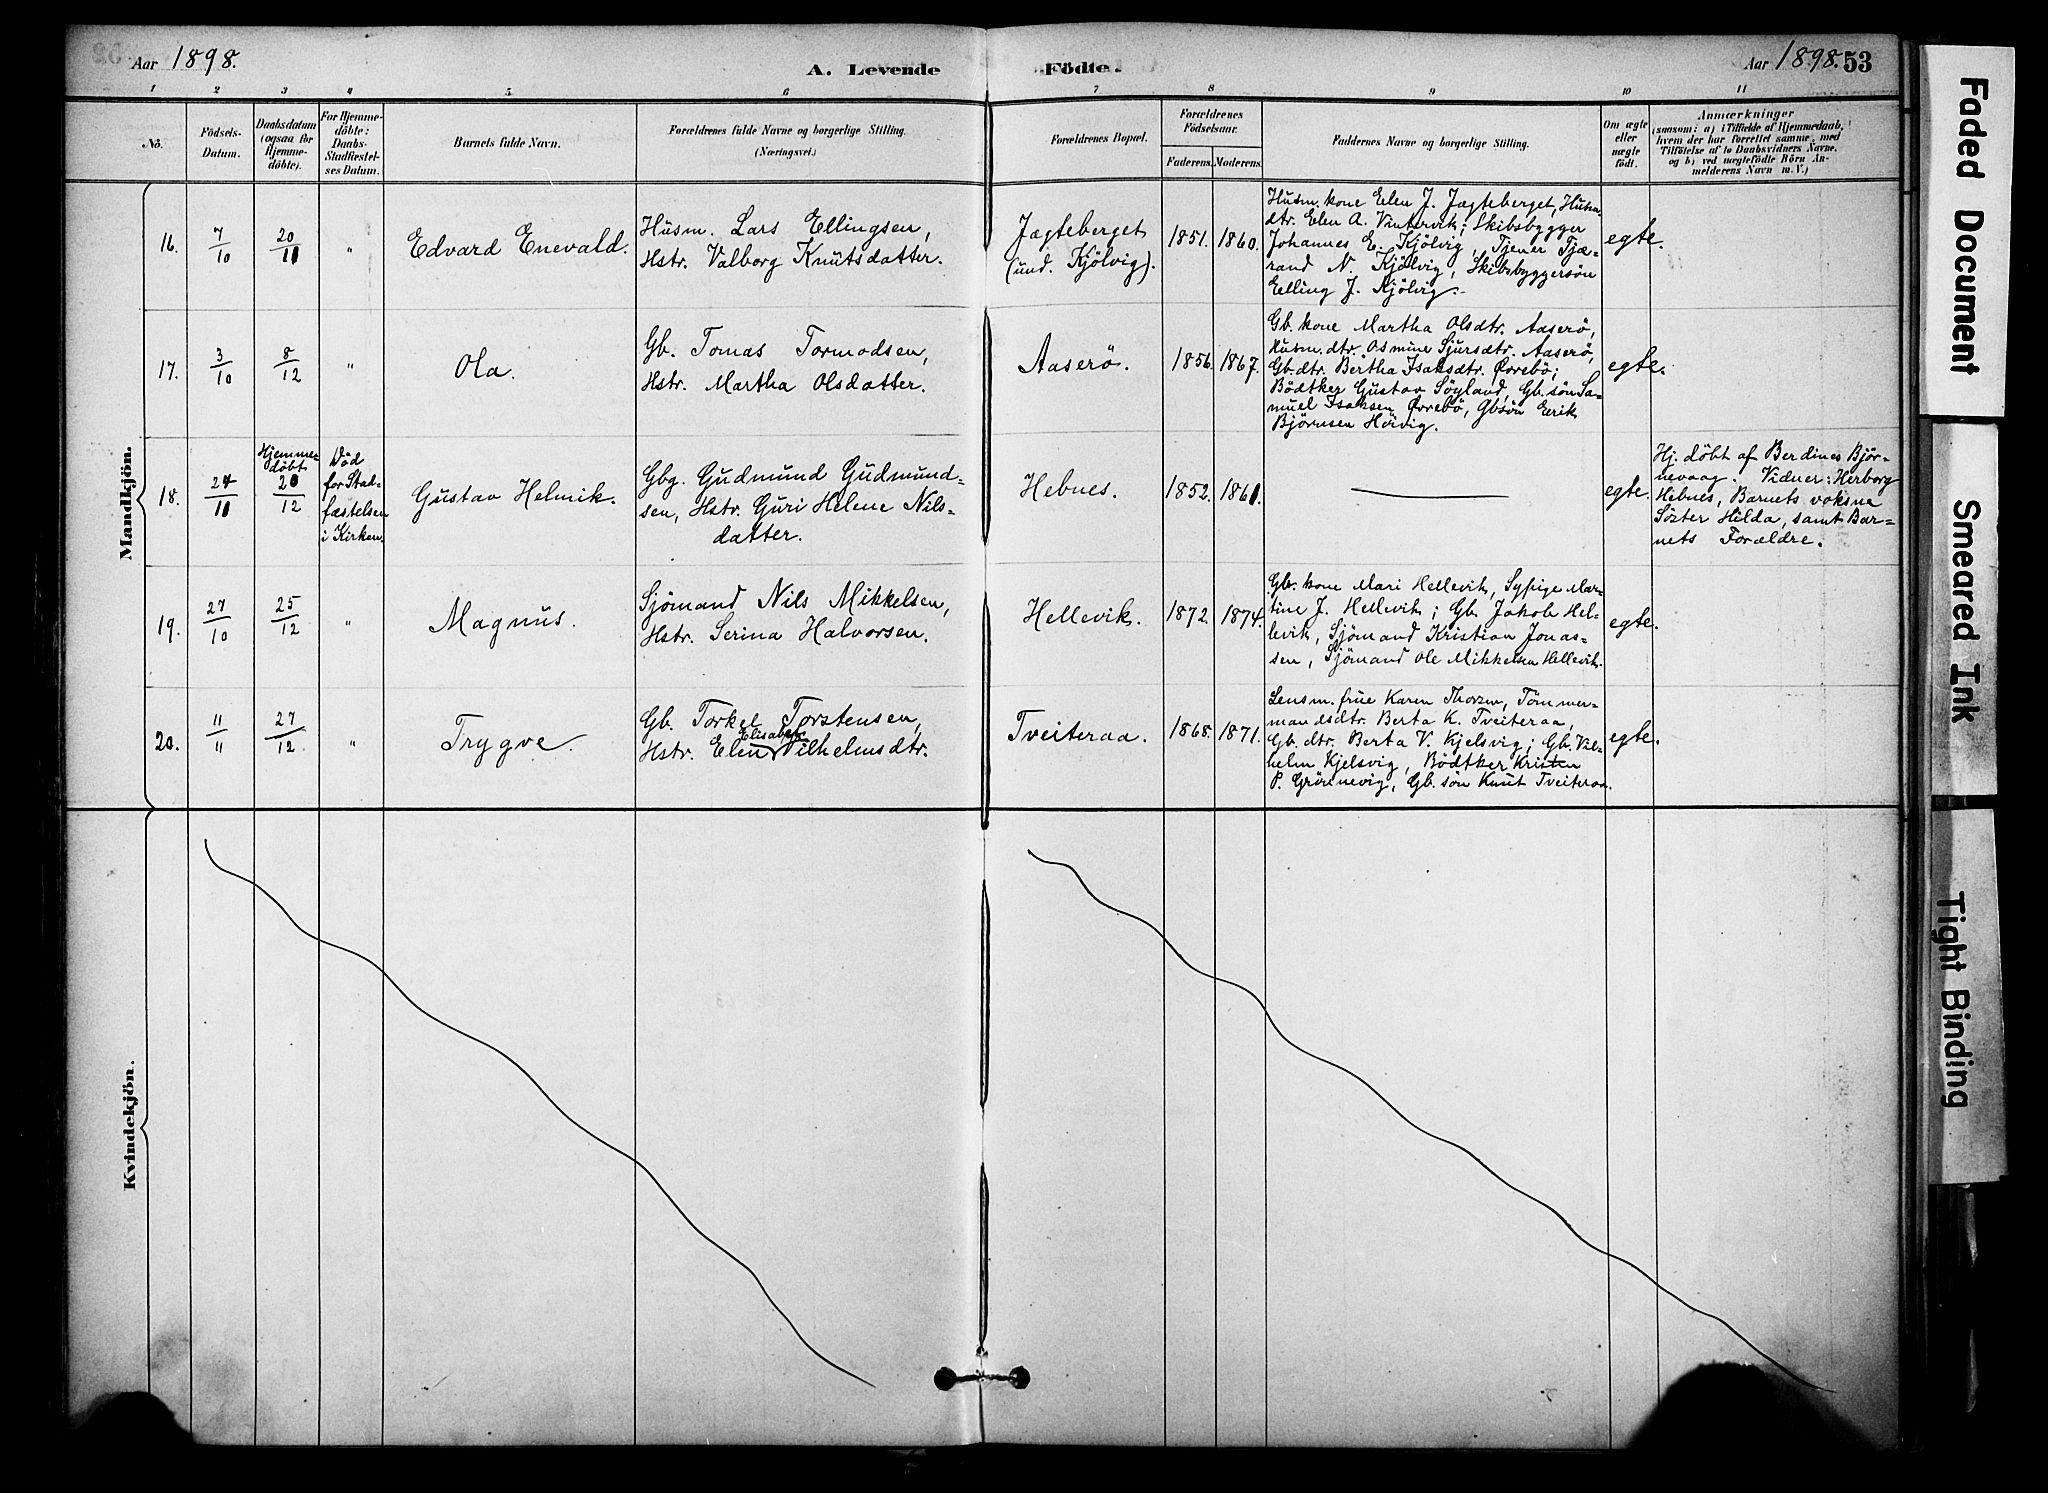 Aar 1898.
A. Levende Födte.
Aar 1898. 53
1 2 3 4 5 6 7 8 9 10 11
No.
Födsels-
Datum.
Daabsdatum
(ogsaa for
Hjemme-
döbte).
For Hjemme-
döbte:
Daabs-
Stadfæstel-
ses Datum.
Barnets fulde Navn.
Forældrenes fulde Navne og borgerlige Stilling.
(Næringsvei.)
Forældrenes Bopæl.
Forældrenes
Födselsaar.
Faderens. Moderens.
Faddernes Navne og borgerlige Stilling.
Om ægte
eller
uægte
födt.
Anmærkninger
(saasom: a) i Tilfælde af Hjemmedaab,
hvem der har forrettet samme, med
Tilföielse af to Daabsvidners Navne,
og b) ved uægtefödte Börn An-
melderens Navn m. V.)
Mandkjön.
16.
7/10
20/11
"
Edvard Enevald.
Husm. Lars Ellingsen,
Hstr. Valborg Knutsdatter.
Jægteberget
(und. Kjölvig).
1851. 1860.
Husm. kone Elen J. Jægteberget, Husm.
dtr. Elen A. Vintervik; Skibsbygger
Johannes E. Kjölvig, Tjener Tjæ-
rand N. Kjölvig, Skibsbyggersön
Elling J. Kjölvig.
egte.
17.
3/10
8/12
"
Ola.
Gb. Tomas Tormodsen,
Hstr. Martha Olsdatter.
Aaserö.
1856. 1867.
Gb. kone Martha Olsdtr. Aaserö,
Husm. dtr. Osmine Sjursdtr. Aaserö,
Gb. dtr. Bertha Isaksdtr. Øvrebö;
Bödtker Gustav Söyland, Gb. sön Sa-
muel Isaksen Øvrebö, Gbsön Eerik
Björnsen Hervig.
egte.
18.
24/11
Hjemme-
döbt
20/12
Död
for Stad-
fæstelsen
i Kirken.
Gustav Helmik.
Gbg. Gudmund Gudmund-
sen, Hstr. Guri Helene Nils-
datter.
Hebnes.
1852. 1861.
egte.
Hj. döbt af Berdines Björ-
nevaag. Vidner: Herborg
Hebnes, Barnets voksne
Söster Hilda, samt Bar-
nets Forældre.
19.
27/10
25/12
"
Magnus.
Sjömand Nils Mikkelsen,
Hstr. Serina Halvorsen.
Hellevik.
1872. 1874.
Gb. kone Mari Hellevik, Sypige Mar-
tine J. Hellevik; Gb. Jakob Hel-
levik, Sjömand Kristian Jonas-
sen, Sjömand Ole Mikkelsen Hellevik.
egte.
20.
11/11
27/12
"
Trygve.
Gb. Torkel Torstensen,
Elisabet
Hstr. Elen Vilhelmsdtr.
Tveiteraa.
1868. 1871.
Lensm. frue Karen Thorsen, Tömmer-
mandsdtr. Berta K. Tveiteraa,
Gb. dtr. Berta V. Kjelsvig; Gb. Vil-
helm Kjelsvig, Bödtker Kristen
P. Grönnevig, Gb. sön Knut Tveiteraa.
egte.
Kvindekjön.
Faded Document
Smeared Ink
Tight Binding